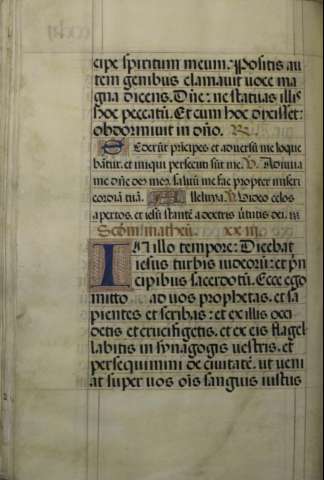 cipe spiritum meum. Positis au
tem genibus clamauit uoce ma
gna dicens. Dñe: ne statuas illis
hoc peccatũ. Et cum hoc dixisset:
obdormiuit in dño. R.
Sederũt prĩcipes et aduersũ me loque
bãtur. et iniqui persecuti sũt me. V. Adiuua
me dñe deꝰ meꝰ. saluũ me fac propter miseri
cordiã tuã. Alleluya. V. Video celos
apertos. et iesũ stantẽ a dextris uirtutis dei.
Scđm matheũ. xxiii.
In illo tempore: Dicebat
iesus turbis iudeorũ: et prĩ
cipibus sacerdotũ. Ecce ego
mitto ad uos prophetas. et sa
pientes et scribas: et ex illis occi
detis et crucifigetis. et ex eis flagel
labitis in synagogis uestris. et
persequimini de ciuitatẽ. ut ueni
at super uos oĩs sanguis iustus